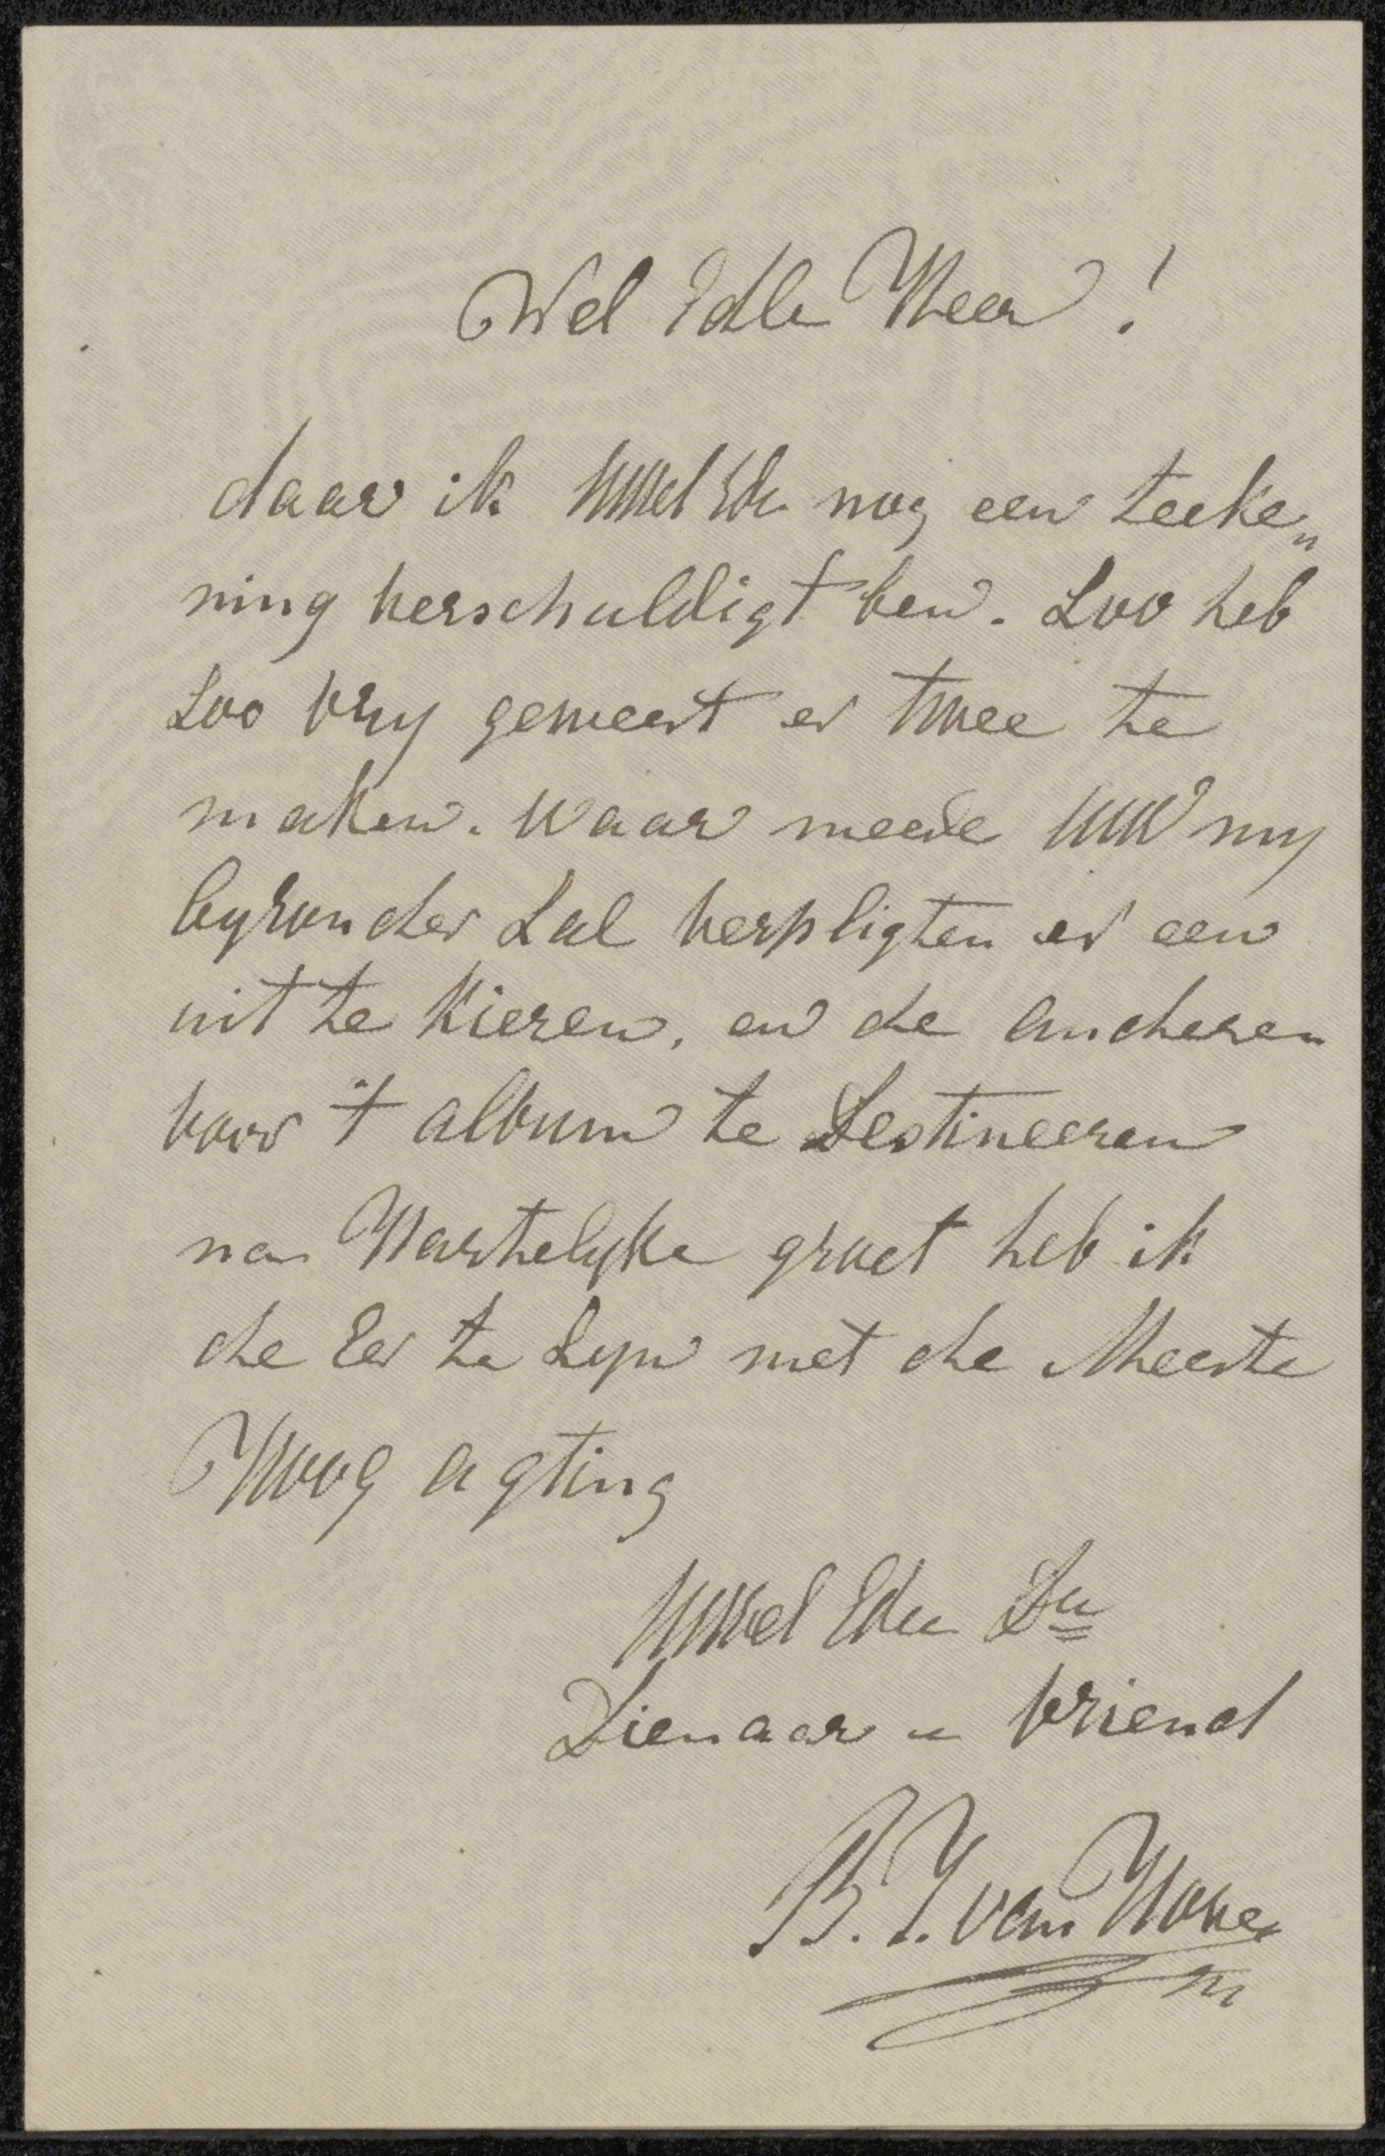 Wel Edle Heer!
daar ik UWelEdle nog een teeke„
ning verschuldigt ben. Zoo heb
zoo vry geweest er twee te
maken. Waar meede UW my
byzonder zal verpligten er een
uit te kiezen, en de anderen
voor 't album te Destineeren
na Hartelyke groet heb ik
de Eer te zyn met de Meeste
Hoog agting
UWel Edle Dn
Dienaar en vriend
B. J. van Hove